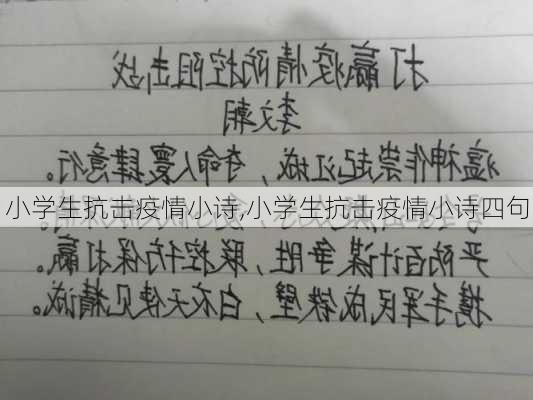 打赢疫情防控阻击战
李文朝
瘟神作祟起江城，夺命人寰肆意行。
小学生抗击疫情小诗,小学生抗击疫情小诗四句
严防百计谋争胜，联控千方保打赢。
携手军民成铁壁，白衣天使见精诚。